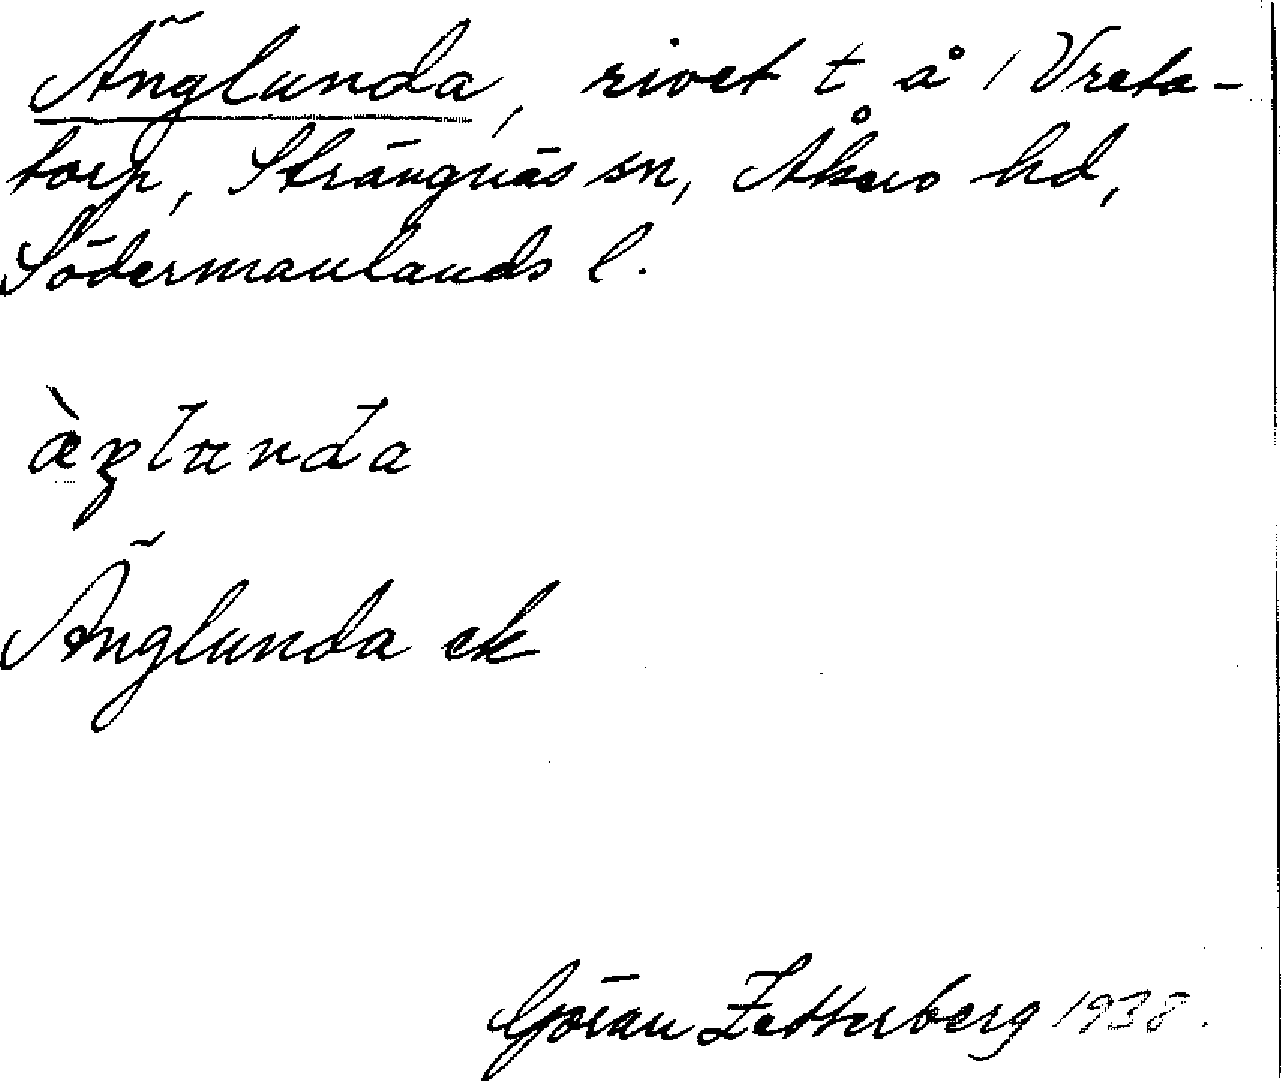 Änglunda, rivet t å / Vreta-
torp, Strängnäs sn, Åkers hd,
Södermanlands l.
æ̀ŋlunda
Änglunda ek
Göran Zetterberg 1938.